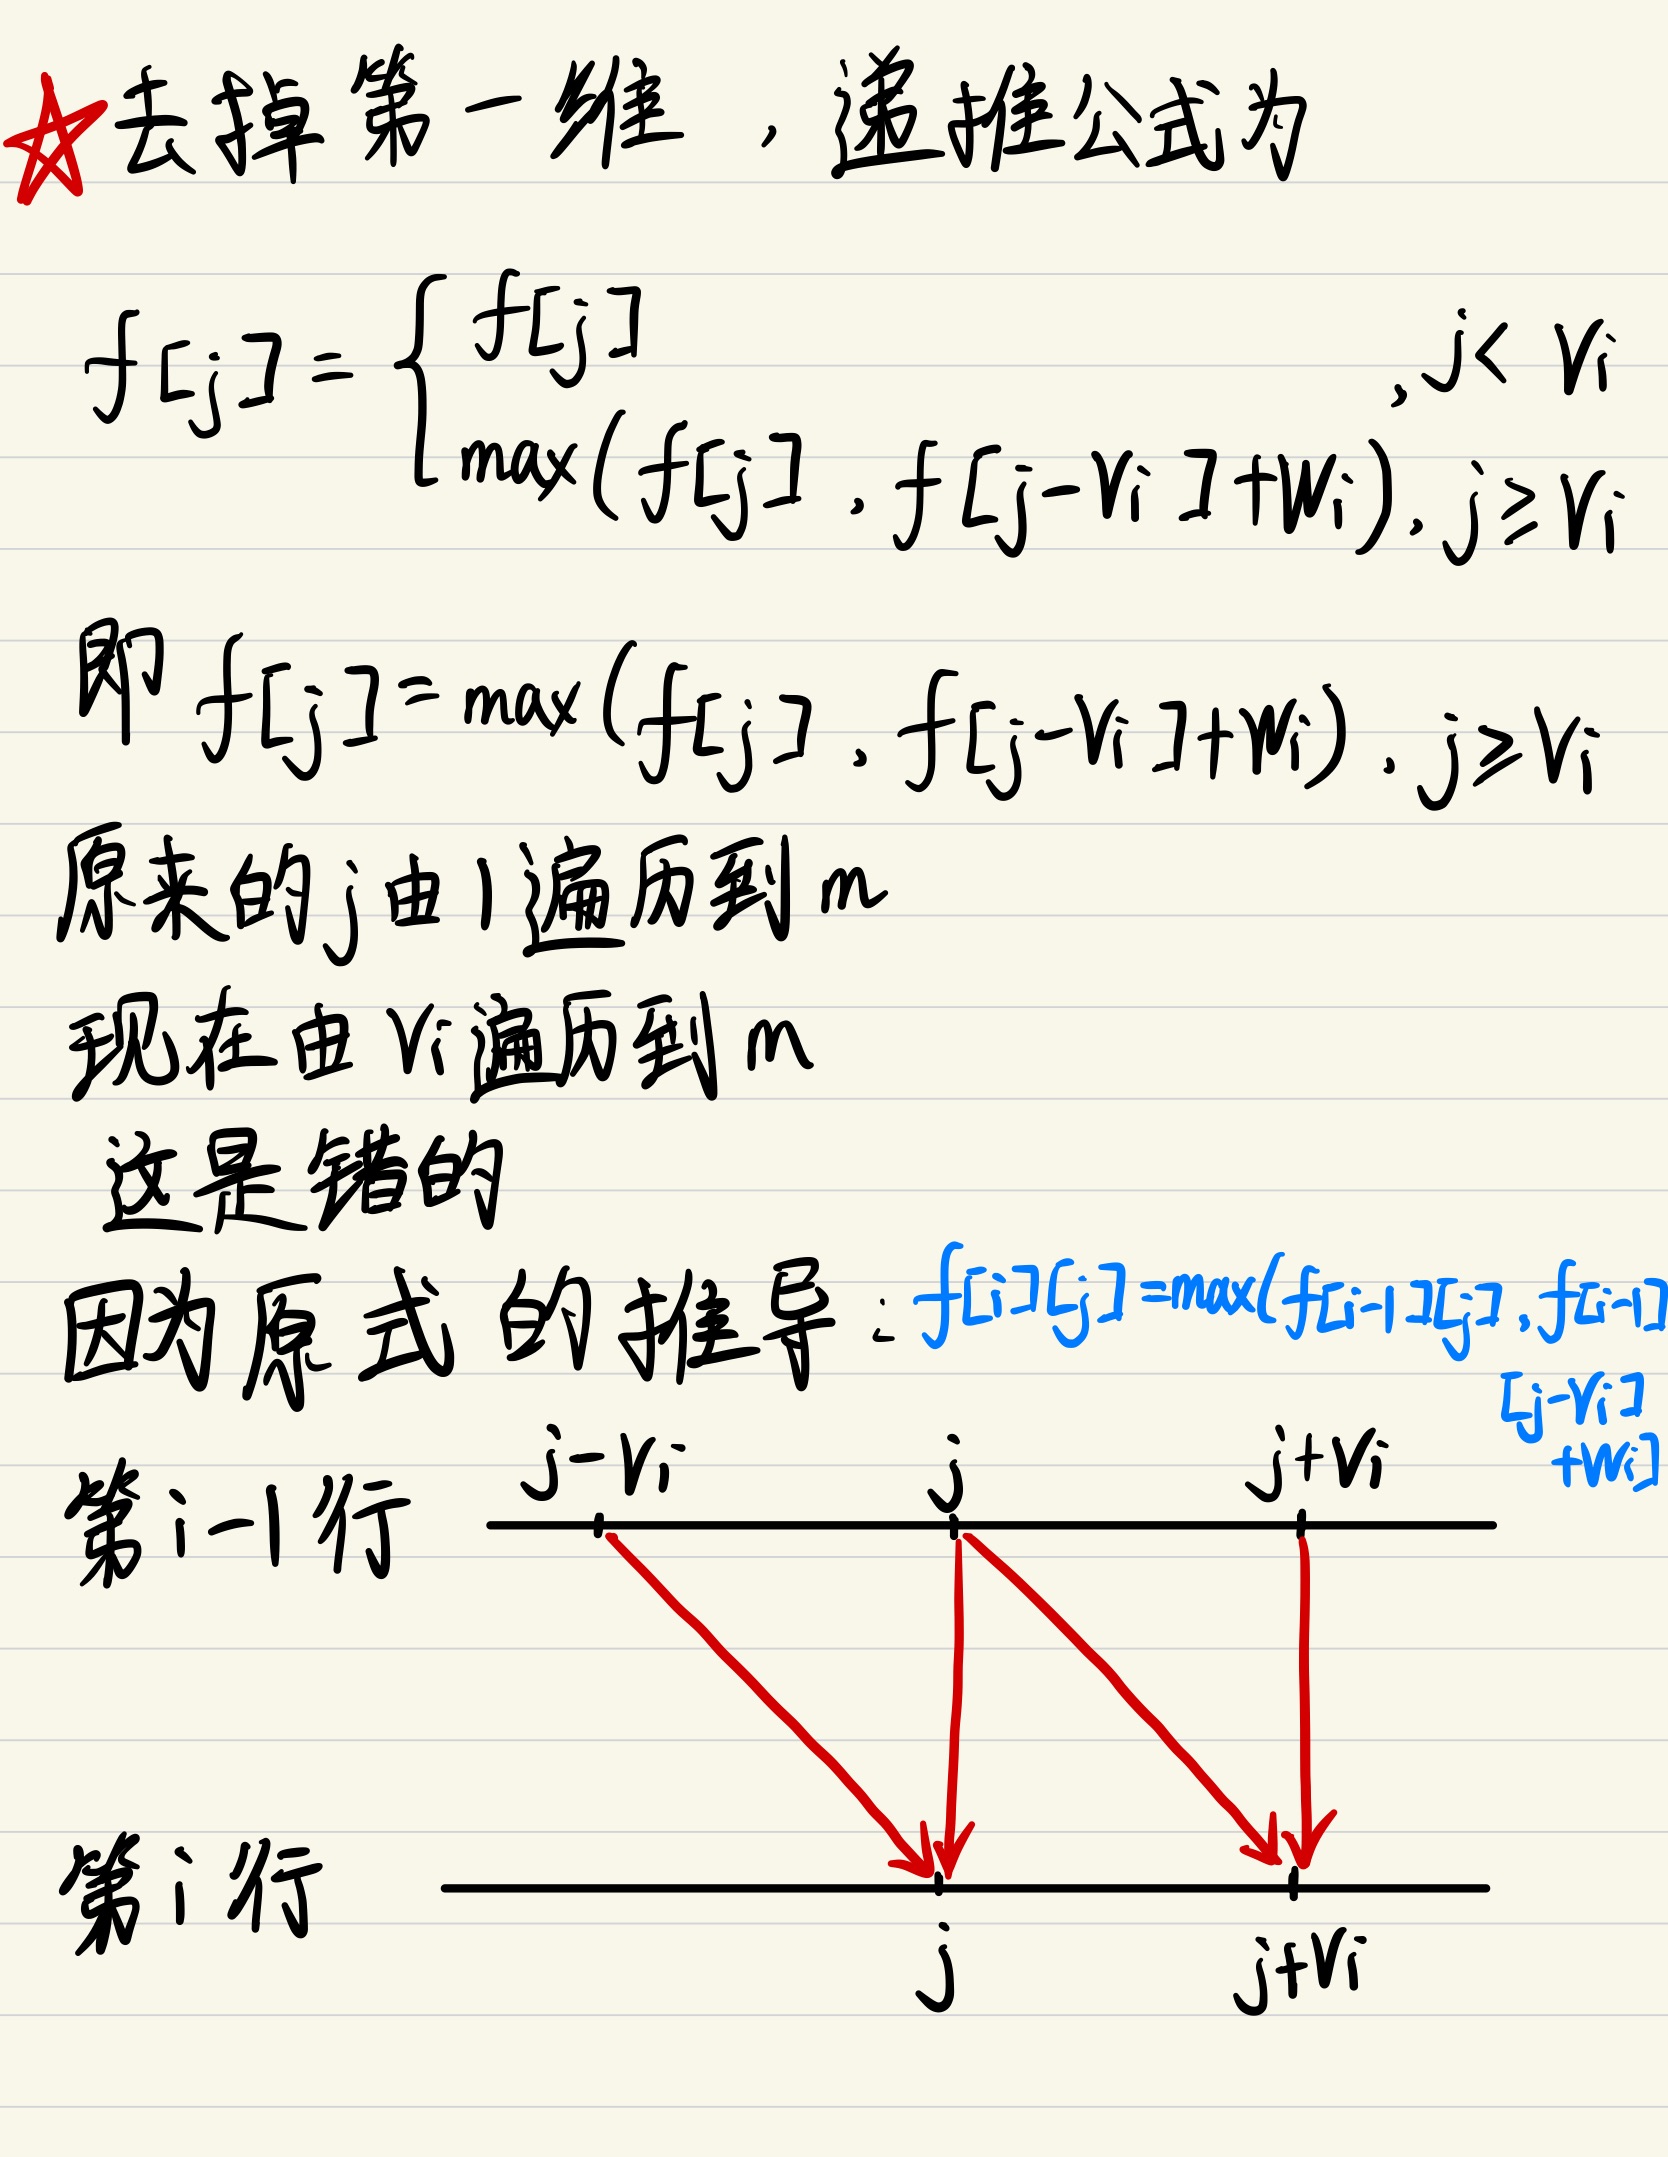 去掉第一维，递推公式为
f[j] = { f[j] , j < Vi
max(f[j], f[j-Vi]+Wi), j ≥ Vi
即 f[j] = max(f[j], f[j-Vi]+Wi), j ≥ Vi
原来的j由1遍历到m
现在由Vi遍历到m
这是错的
因为原式的推导：f[i][j]=max(f[i-1][j],f[i-1]
[j-Vi]
+Wi]
j-Vi j j+Vi
第i-1行
第i行
j j+Vi